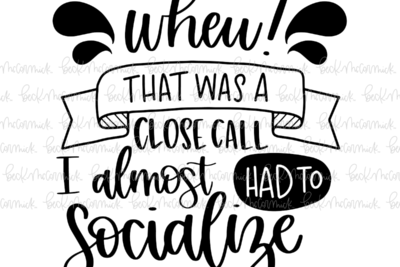 whew!
THAT WAS A
CLOSE CALL
I almost HAD TO
Socialize